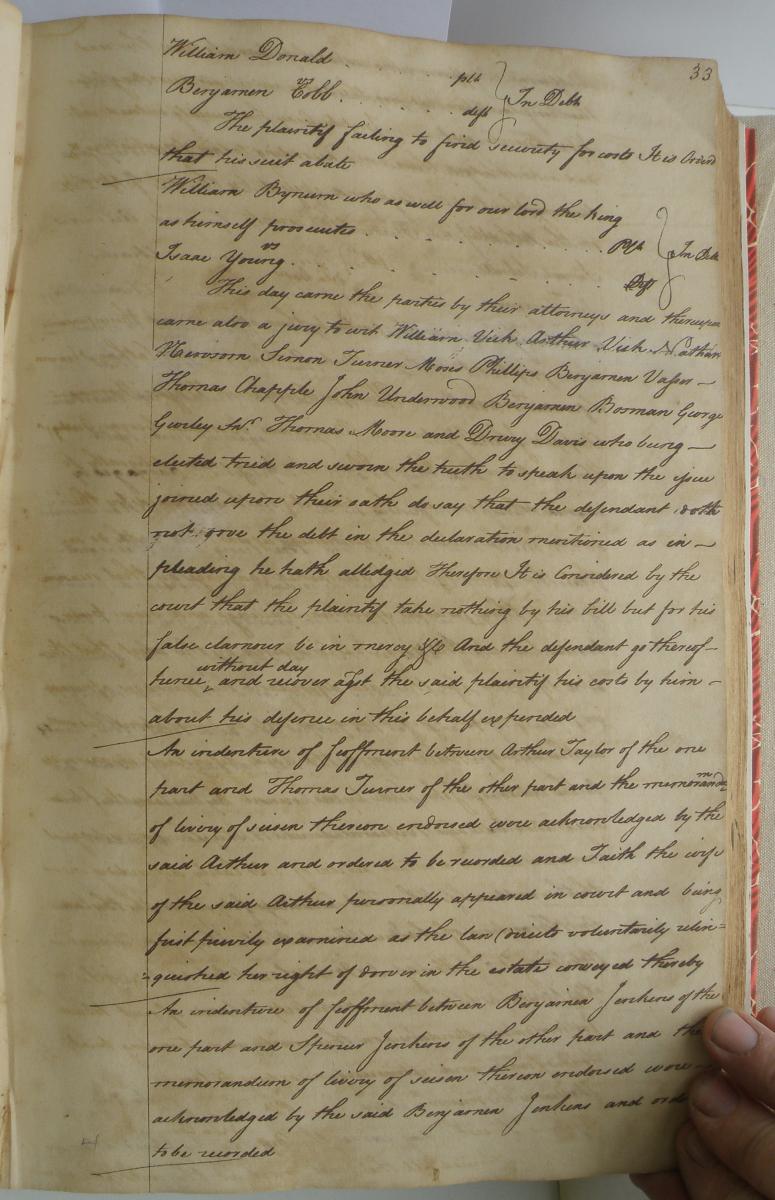 33
William Donald . . . . . . . plt
vs
Benjamen Cobb . . . . . . . deft } In Debt
The plaintif failing to find security for costs It is Orderd
that his suit abate
William Bynum who as well for our lord the king
as himself prosecutes . . . . . . . Plt
vs
Isaac Young . . . . . . . Deft } In Debt
This day came the parties by their attorneys and thereupon
came also a jury to wit William Vick Arthur Vick Nathan
Newsom Simon Turner Moses Phillips Benjamen Vasser
Thomas Chapple John Underwood Benjamen Borman George
Gurley Junr Thomas Moore and Drury Davis who being
elected tried and sworn the truth to speak upon the issue
joined upon their oath do say that the defendant doth
not owe the debt in the declaration mentioned as in
pleading he hath alledged Therefore It is Considered by the
court that the plaintif take nothing by his bill but for his
false clamour be in mercy &c And the defendant go thereof
hence without day and recover agst the said plaintif his costs by him
about his defence in this behalf expended
An indenture of feoffment between Arthur Taylor of the one
part and Thomas Turner of the other part and the memorandm
of livery of seisen thereon endorsed were acknowledged by the
said Arthur and ordered to be recorded and Faith the wife
of the said Arthur personally appeared in court and being
first privily examined as the law directs voluntarily relin=
=quished her right of dower in the estate conveyed thereby
An indenture of feoffment between Benjamen Jenkens of the
one part and Spencer Jenkens of the other part and the
memorandum of livery of seisen thereon endorsed were
acknowledged by the said Benjamen Jenkens and ord
to be recorded